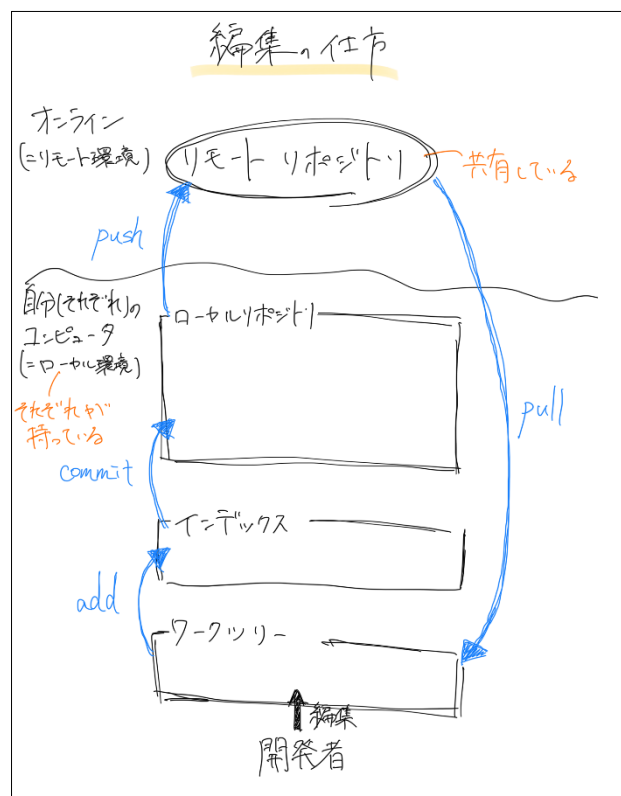 編集の仕方
オンライン
(=リモート環境)
リモート リポジトリ
共有している
push
自分(それぞれ)の
コンピュータ
(=ローカル環境)
それぞれが
持っている
ローカルリポジトリ
pull
commit
インデックス
add
ワークツリー
編集
開発者